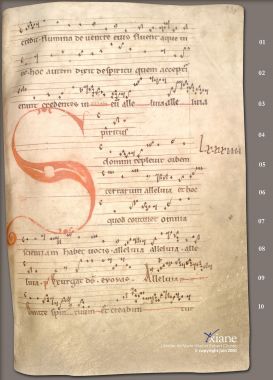 credit flumina de ventre eius fluent aque ui
ue hoc autem dixit de spiritu quem accepturi
erant credentes in eum alle luia alle luia
Spiritus
domini repleuit orbem
terrarum alleluia et hoc
quod continet omnia
scientiam habet uocis alleluia alleluia alle
luia Exurgat ds euouae Alleluia
Emitte spiritum tuum et creabun tur
01
02
03
04
05
06
07
08
09
10
Xiane
© copyright juin 2000